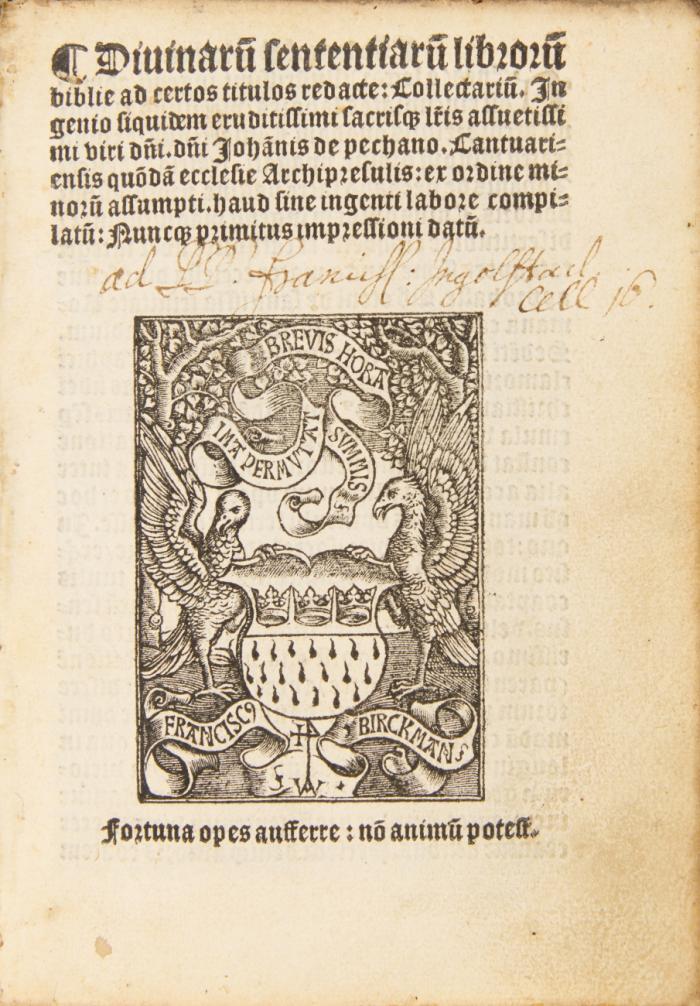 ¶ Diuinarū sententiarū librorū
biblie ad certos titulos redacte: Collectariū. In
genio siquidem eruditissimi sacrisqꝫ lr̄is assuetissi
mi viri dn̄i.dn̄i Johānis de pechano. Cantuari⸗
ensis quōdā ecclesie Archipresulis: ex ordine mi⸗
norū assumpti. haud sine ingenti labore compi⸗
latū: Nuncqꝫ primitus impressioni datū.
ad PP. Francisc: Ingolstad.
Cell 16.
BREVIS HORA
IMA PERMVTAT
SVMMIS
FRANCISCꝰ
BIRCKMANS
Fortuna opes aufferre : nō animū potest.